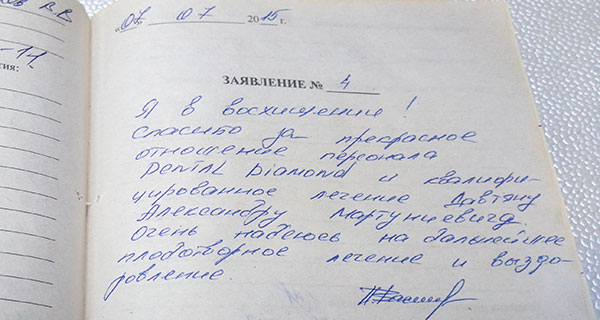 ов В.В
-14
тия:
«07» 07 2015 г.
ЗАЯВЛЕНИЕ № 4
Я в восхищении!
Спасибо за прекрасное
отношение персонала
Dental Diamond и квалифи-
цированное лечение Давтяну
Александру Мартуниевичу.
Очень надеюсь на дальнейшее
плодотворное лечение и выздо-
ровление.